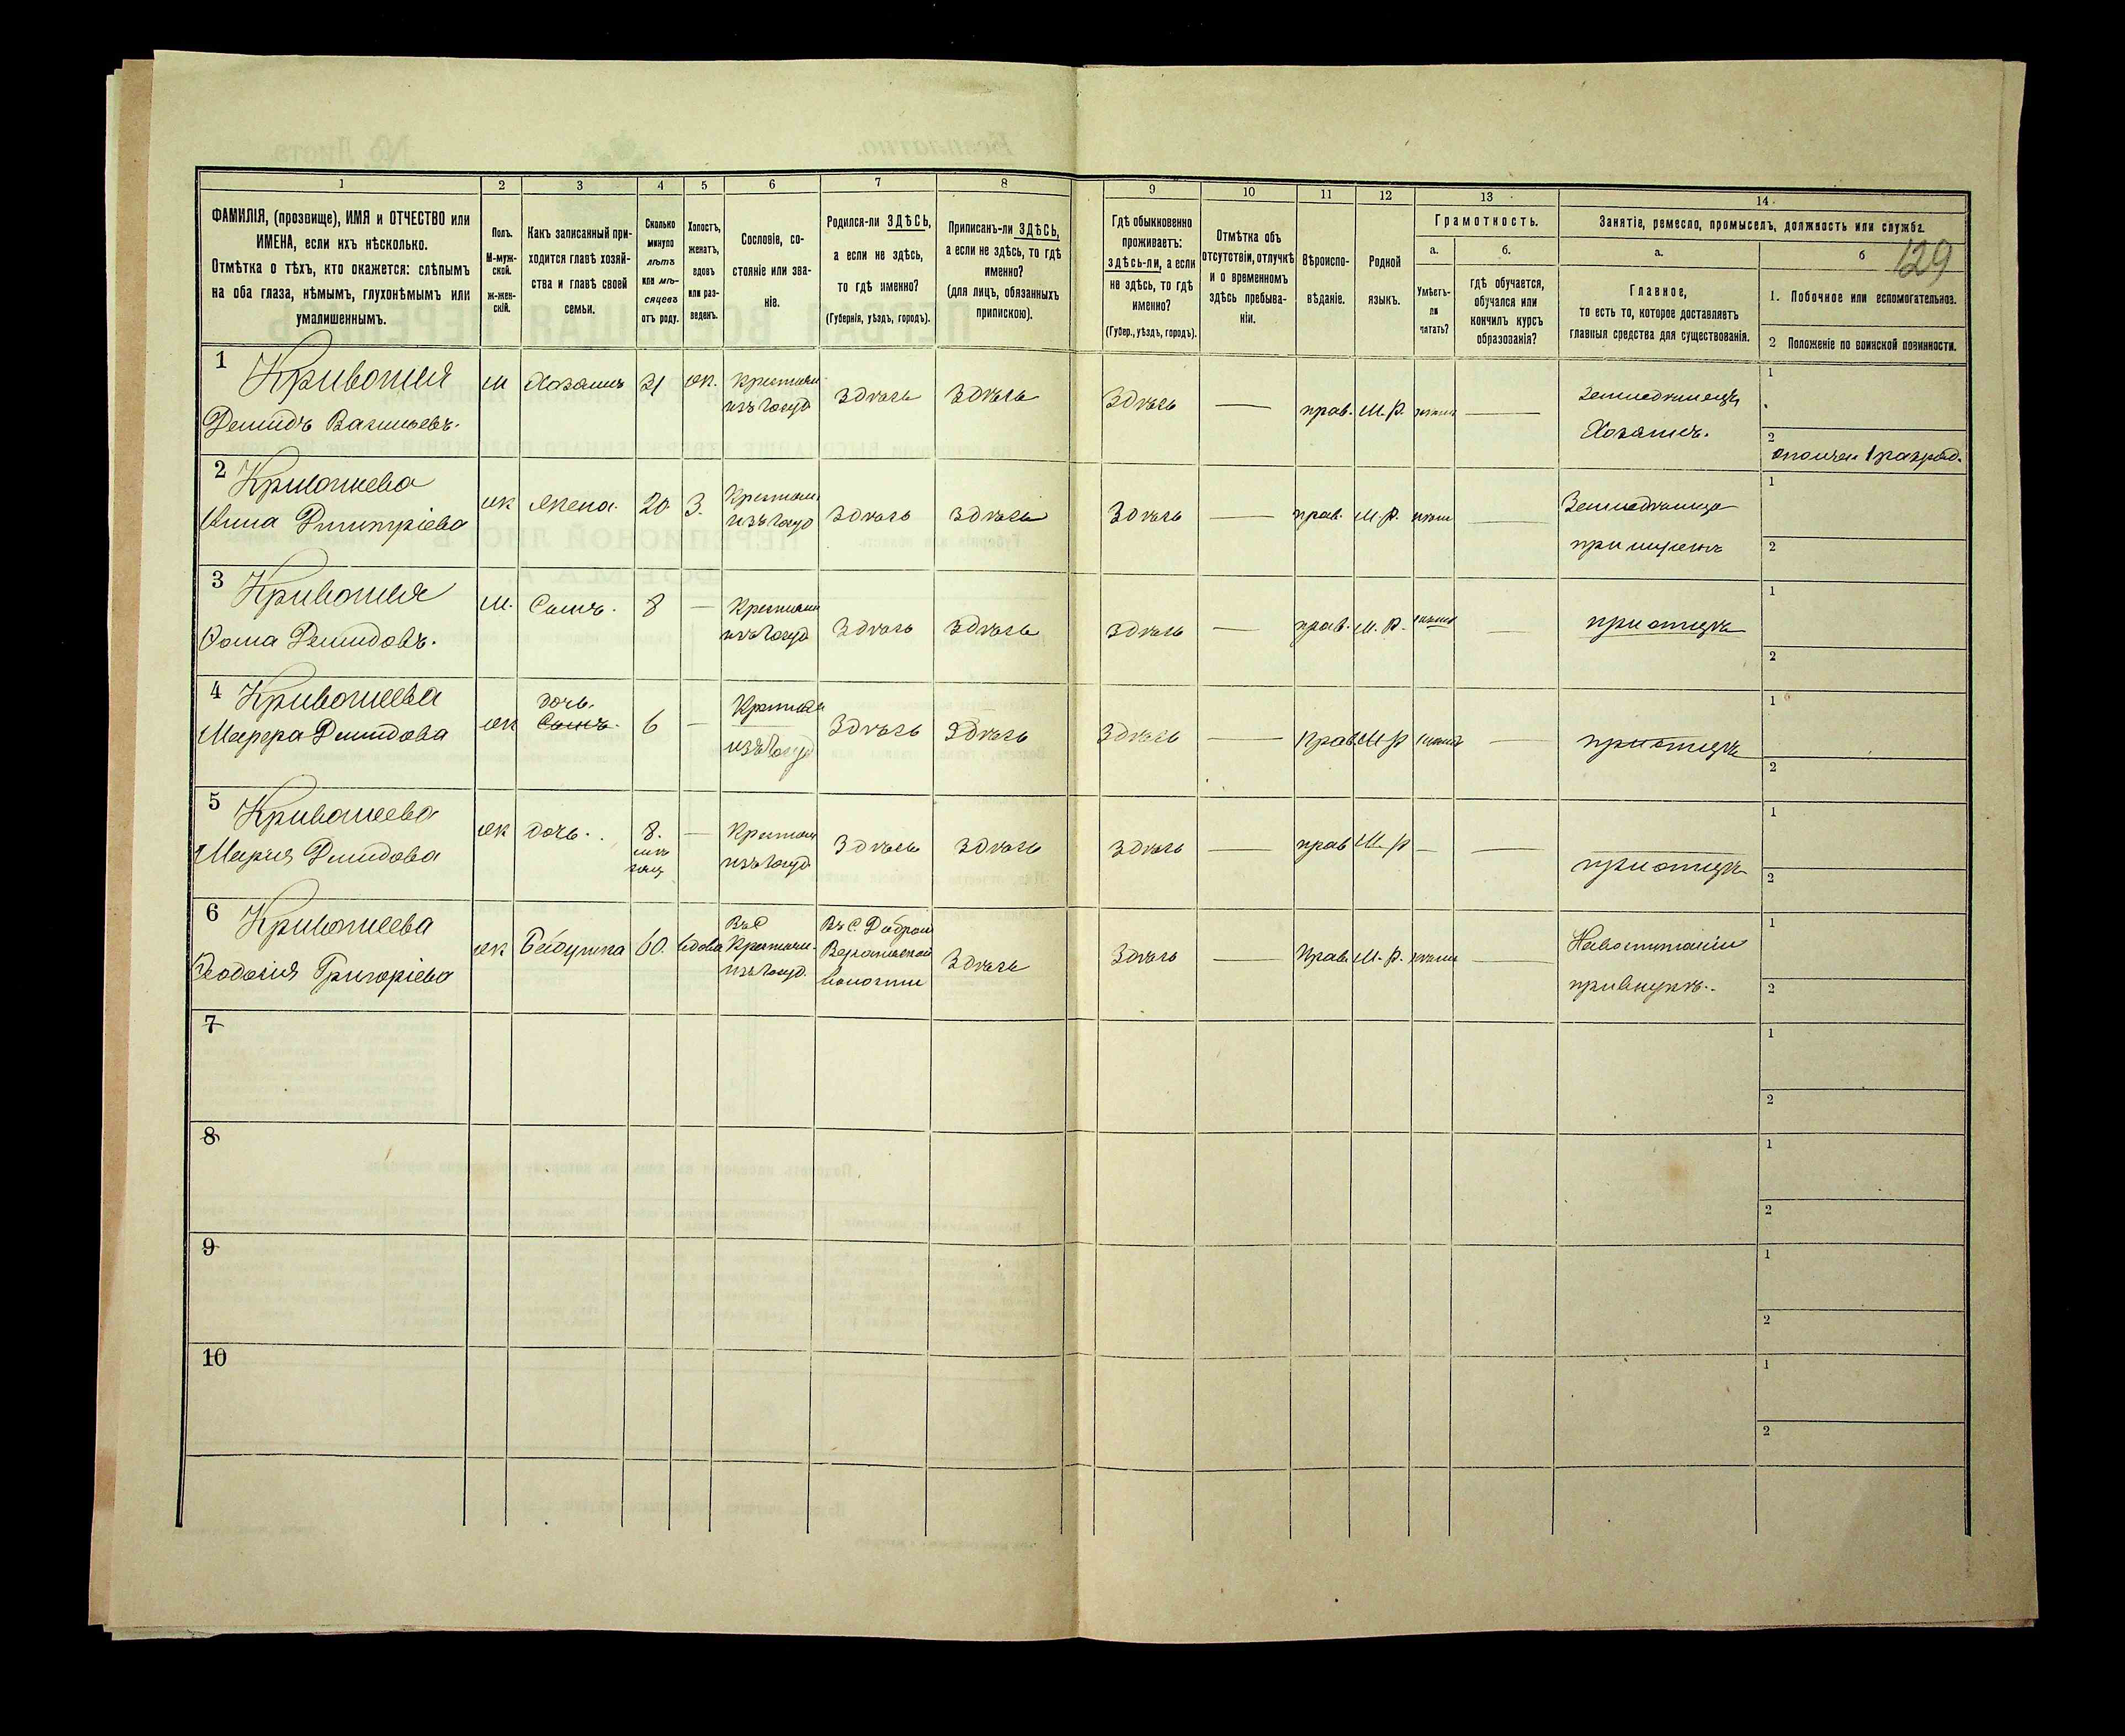 1 2 3 4 5 6 7 8 9 10 11 12 13 14
ФАМИЛІЯ, (прозвище), ИМЯ и ОТЧЕСТВО или
ИМЕНА, если ихъ нѣсколько.
Отмѣтка о тѣхъ, кто окажется: слѣпымъ
на оба глаза, нѣмымъ, глухонѣмымъ или
умалишеннымъ.
Полъ.
М-муж-
ской.
ж-жен-
скій.
Какъ записанный при-
ходится главѣ хозяй-
ства и главѣ своей
семьи.
Сколько
минуло
лѣтъ
или мѣ-
сяцевъ
отъ роду.
Холостъ,
женатъ,
вдовъ
или раз-
веденъ.
Сословіе, со-
стояніе или зва-
ніе.
Родился-ли ЗДѢСЬ,
а если не здѣсь,
то гдѣ именно?
(Губернія, уѣздъ, городъ).
Приписанъ-ли ЗДѢСЬ,
а если не здѣсь, то гдѣ
именно?
(для лицъ, обязанныхъ
припискою).
Гдѣ обыкновенно
проживаетъ:
здѣсь-ли, а если
не здѣсь, то гдѣ
именно?
(Губер., уѣздъ, городъ).
Отмѣтка объ
отсутствіи, отлучкѣ
и о временномъ
здѣсь пребыва-
ніи.
Вѣроиспо-
вѣданіе.
Родной
языкъ.
Грамотность.
а.
Умѣетъ-
ли
читать?
б.
гдѣ обучается,
обучался или
кончилъ курсъ
образованія?
Занятіе, ремесло, промыселъ, должность или служба.
а.
Главное,
то есть то, которое доставляетъ
главныя средства для существованія.
б
129
1. Побочное или вспомогательное.
2 Положеніе по воинской повинности.
1 Кривошея
Демидъ Васильевъ.
м Хозяинъ ж. Крестьян
изъ Госуд
здѣсь здѣсь здѣсь — прав. М. Р. —
Земледѣлецъ
Хозяинъ.
1
2
ополчен 1 разряд.
2 Кривошеева
Анна Дмитріева
ж Жена. 20 З. Крестьян
изъ Госуд
здѣсь здѣсь здѣсь — прав. М. Р. —
при мужѣ
1
2
3 Кривошея
Фома Демидовъ.
м. Сынъ. 8 — Крестьян
изъ Госуд
здѣсь здѣсь здѣсь — прав. М. Р. —
при отцѣ
1
2
4 Кривошеева
Марфа Демидова
ж дочь.
Сынъ.
6 — Крестьян
изъ Госуд
здѣсь здѣсь здѣсь — прав. М Р —
при отцѣ
1
2
5 Кривошеева
Марія Демидова
ж дочь. 8.
мѣ
сяц
— Крестьян
изъ Госуд
здѣсь здѣсь здѣсь — прав М. Р — —
при отцѣ
1
2
6 Кривошеева
Феодосія Григоріева
ж Бабушка 60. вдова Крестьян.
изъ Госуд.
Въ С.
волости
здѣсь здѣсь — Прав. М. Р. —
при внукѣ.
1
2
7
1
2
8
1
2
9
1
2
10
1
2